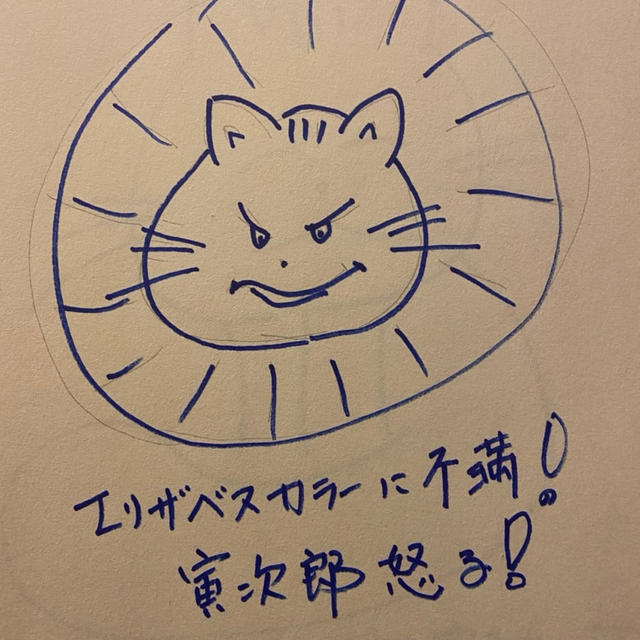 エリザベスカラーに不満!
寅次郎怒る!